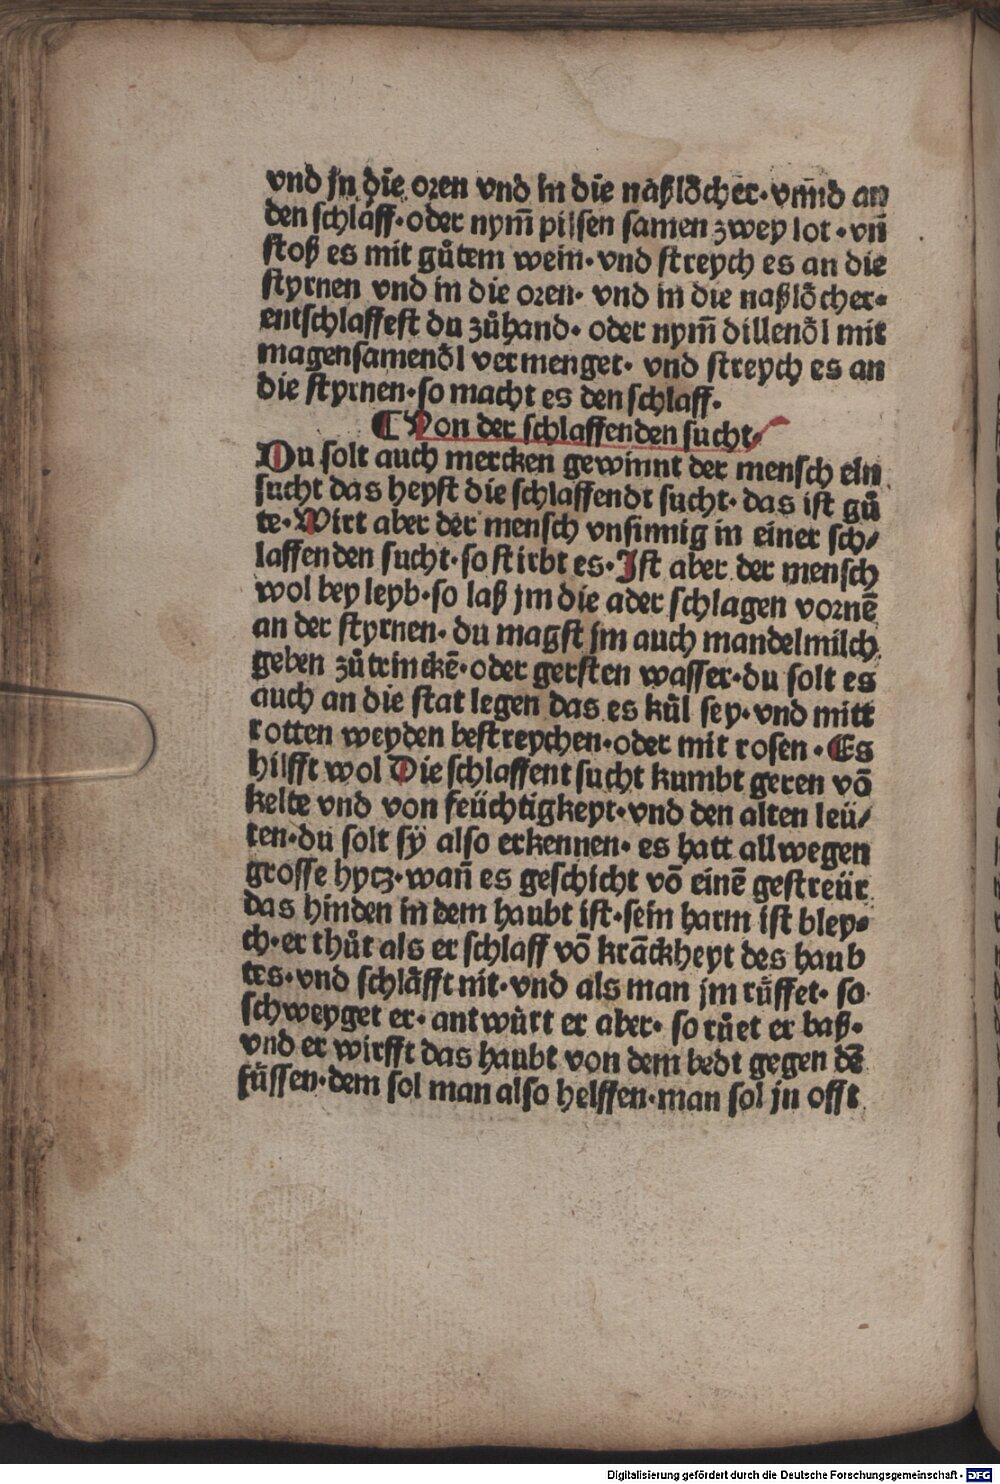 vnd jn die oren vnd in die naßlöcher· vm̄d an
den schlaff· oder nym̄ pilsen samen zwey lot · vn̄
stoß es mit gůtem wein· vnd streych es an die
styrnen vnd in die oren· vnd in die naßlöcher·
entschlaffest du zůhand· oder nym̄ dillenöl mit
magensamenöl vermenget· vnd streych es an
die styrnen· so macht es den schlaff·
¶ Von der schlaffenden sucht·
Du solt auch mercken gewinnt der mensch ein
sucht das heyst die schlaffendt sucht· das ist gů
te· Wirt aber der mensch vnsinnig in einer sch/
laffenden sucht· so stirbt es· Ist aber der mensch
wol bey leyb· so laß jm die ader schlagen vornē
an der styrnen· du magst jm auch mandelmilch
geben zůtrinckē· oder gersten wasser· du solt es
auch an die stat legen das es kůl sey· vnd mitt
rotten weyden bestreychen· oder mit rosen · Es
hilfft wol Die schlaffent sucht kumbt geren vō
kelte vnd von feüchtigkeyt· vnd den alten leü/
ten· du solt sÿ also erkennen· es hatt allwegen
grosse hytz· wan̄ es geschicht vō einē gestreür
das hinden in dem haubt ist· sein harm ist bley·
ch· er thůt als er schlaff vō krāckheyt des haub
tes· vnd schläfft nit· vnd als man jm růffet· so
schweyget er· antwürt er aber· so růet er baß·
vnd er wirfft das haubt von dem bedt gegen dē
füssen· dem sol man also helffen· man sol jn offt
Digitalisierung gefördert durch die Deutsche Forschungsgemeinschaft - DFG